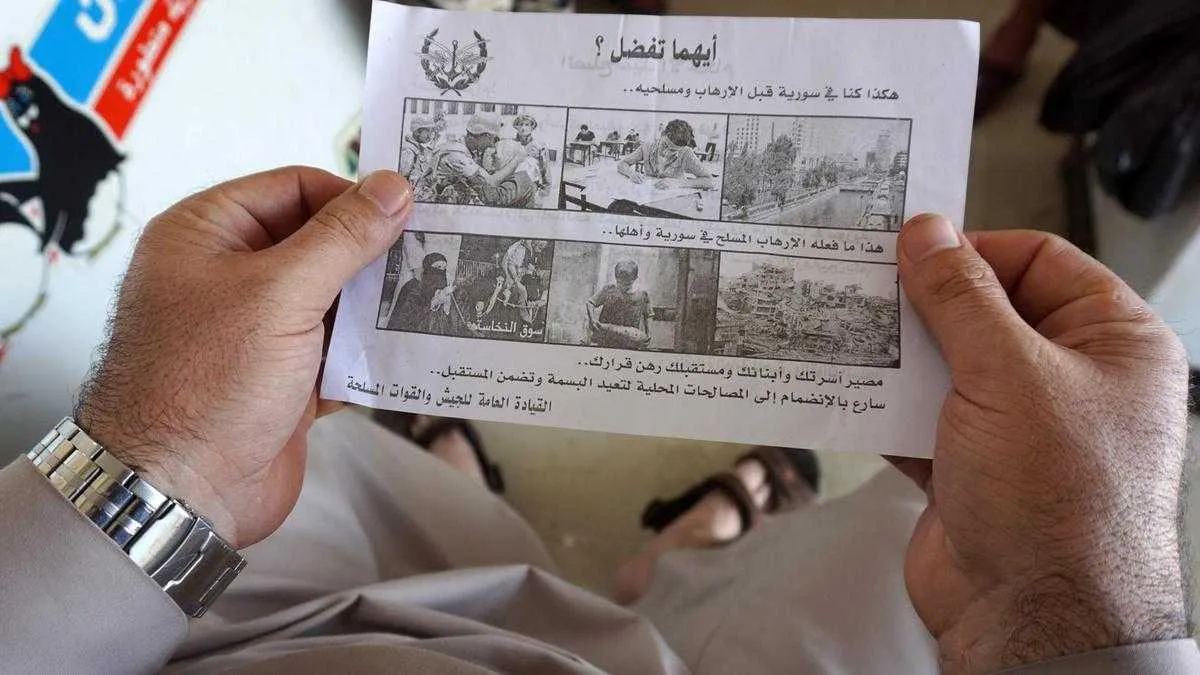 أيهما تفضل ؟
هكذا كنا في سورية قبل الإرهاب ومسلحيه..
هذا ما فعله الإرهاب المسلح في سورية وأهلها..
سوق النخاسة
مصير أسرتك وأبنائك ومستقبلك رهن قرارك..
سارع بالإنضمام إلى المصالحات المحلية لتعيد البسمة وتضمن المستقبل..
القيادة العامة للجيش والقوات المسلحة
متطورة